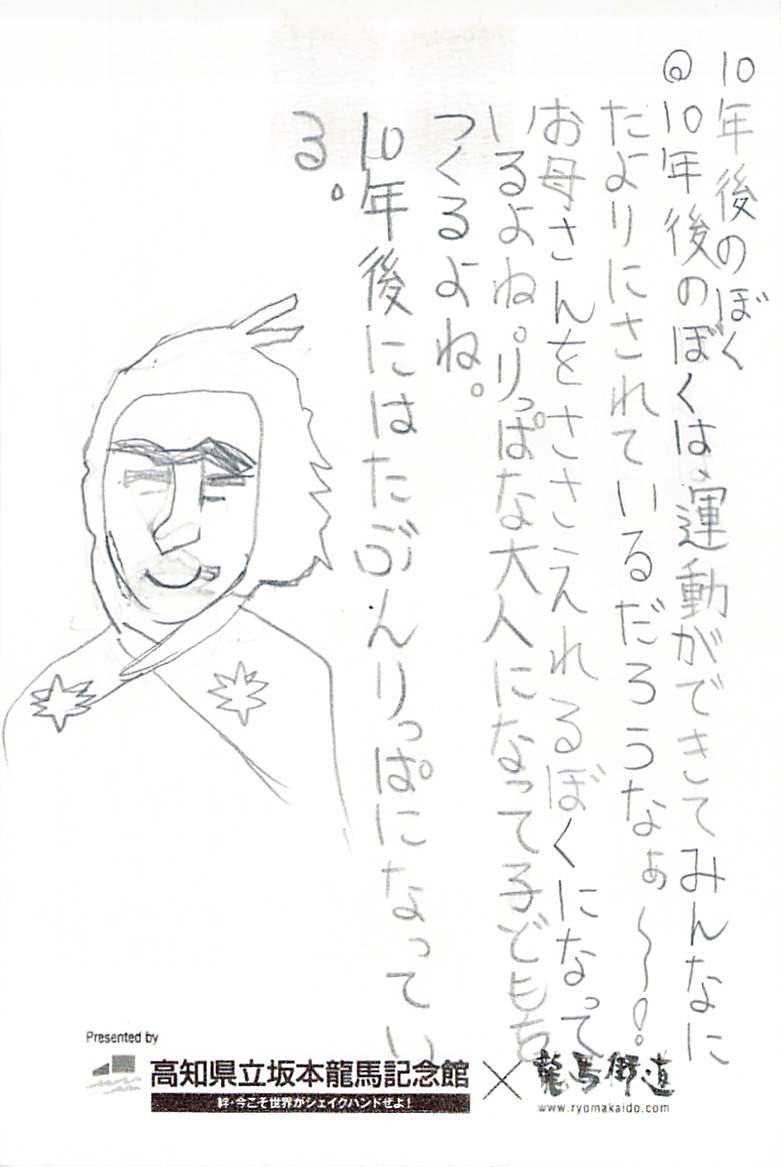 10年後のぼく
◎10年後のぼくは、運動ができてみんなに
たよりにされているだろうなぁ〜〜!
お母さんをささえれるぼくになって
いるよね。りっぱな大人になって子どもも
つくるよね。
10年後にはたぶんりっぱになってい
る。
Presented by
高知県立坂本龍馬記念館×龍馬街道
絆・今こそ世界がシェイクハンドぜよ!
www.ryomakaido.com